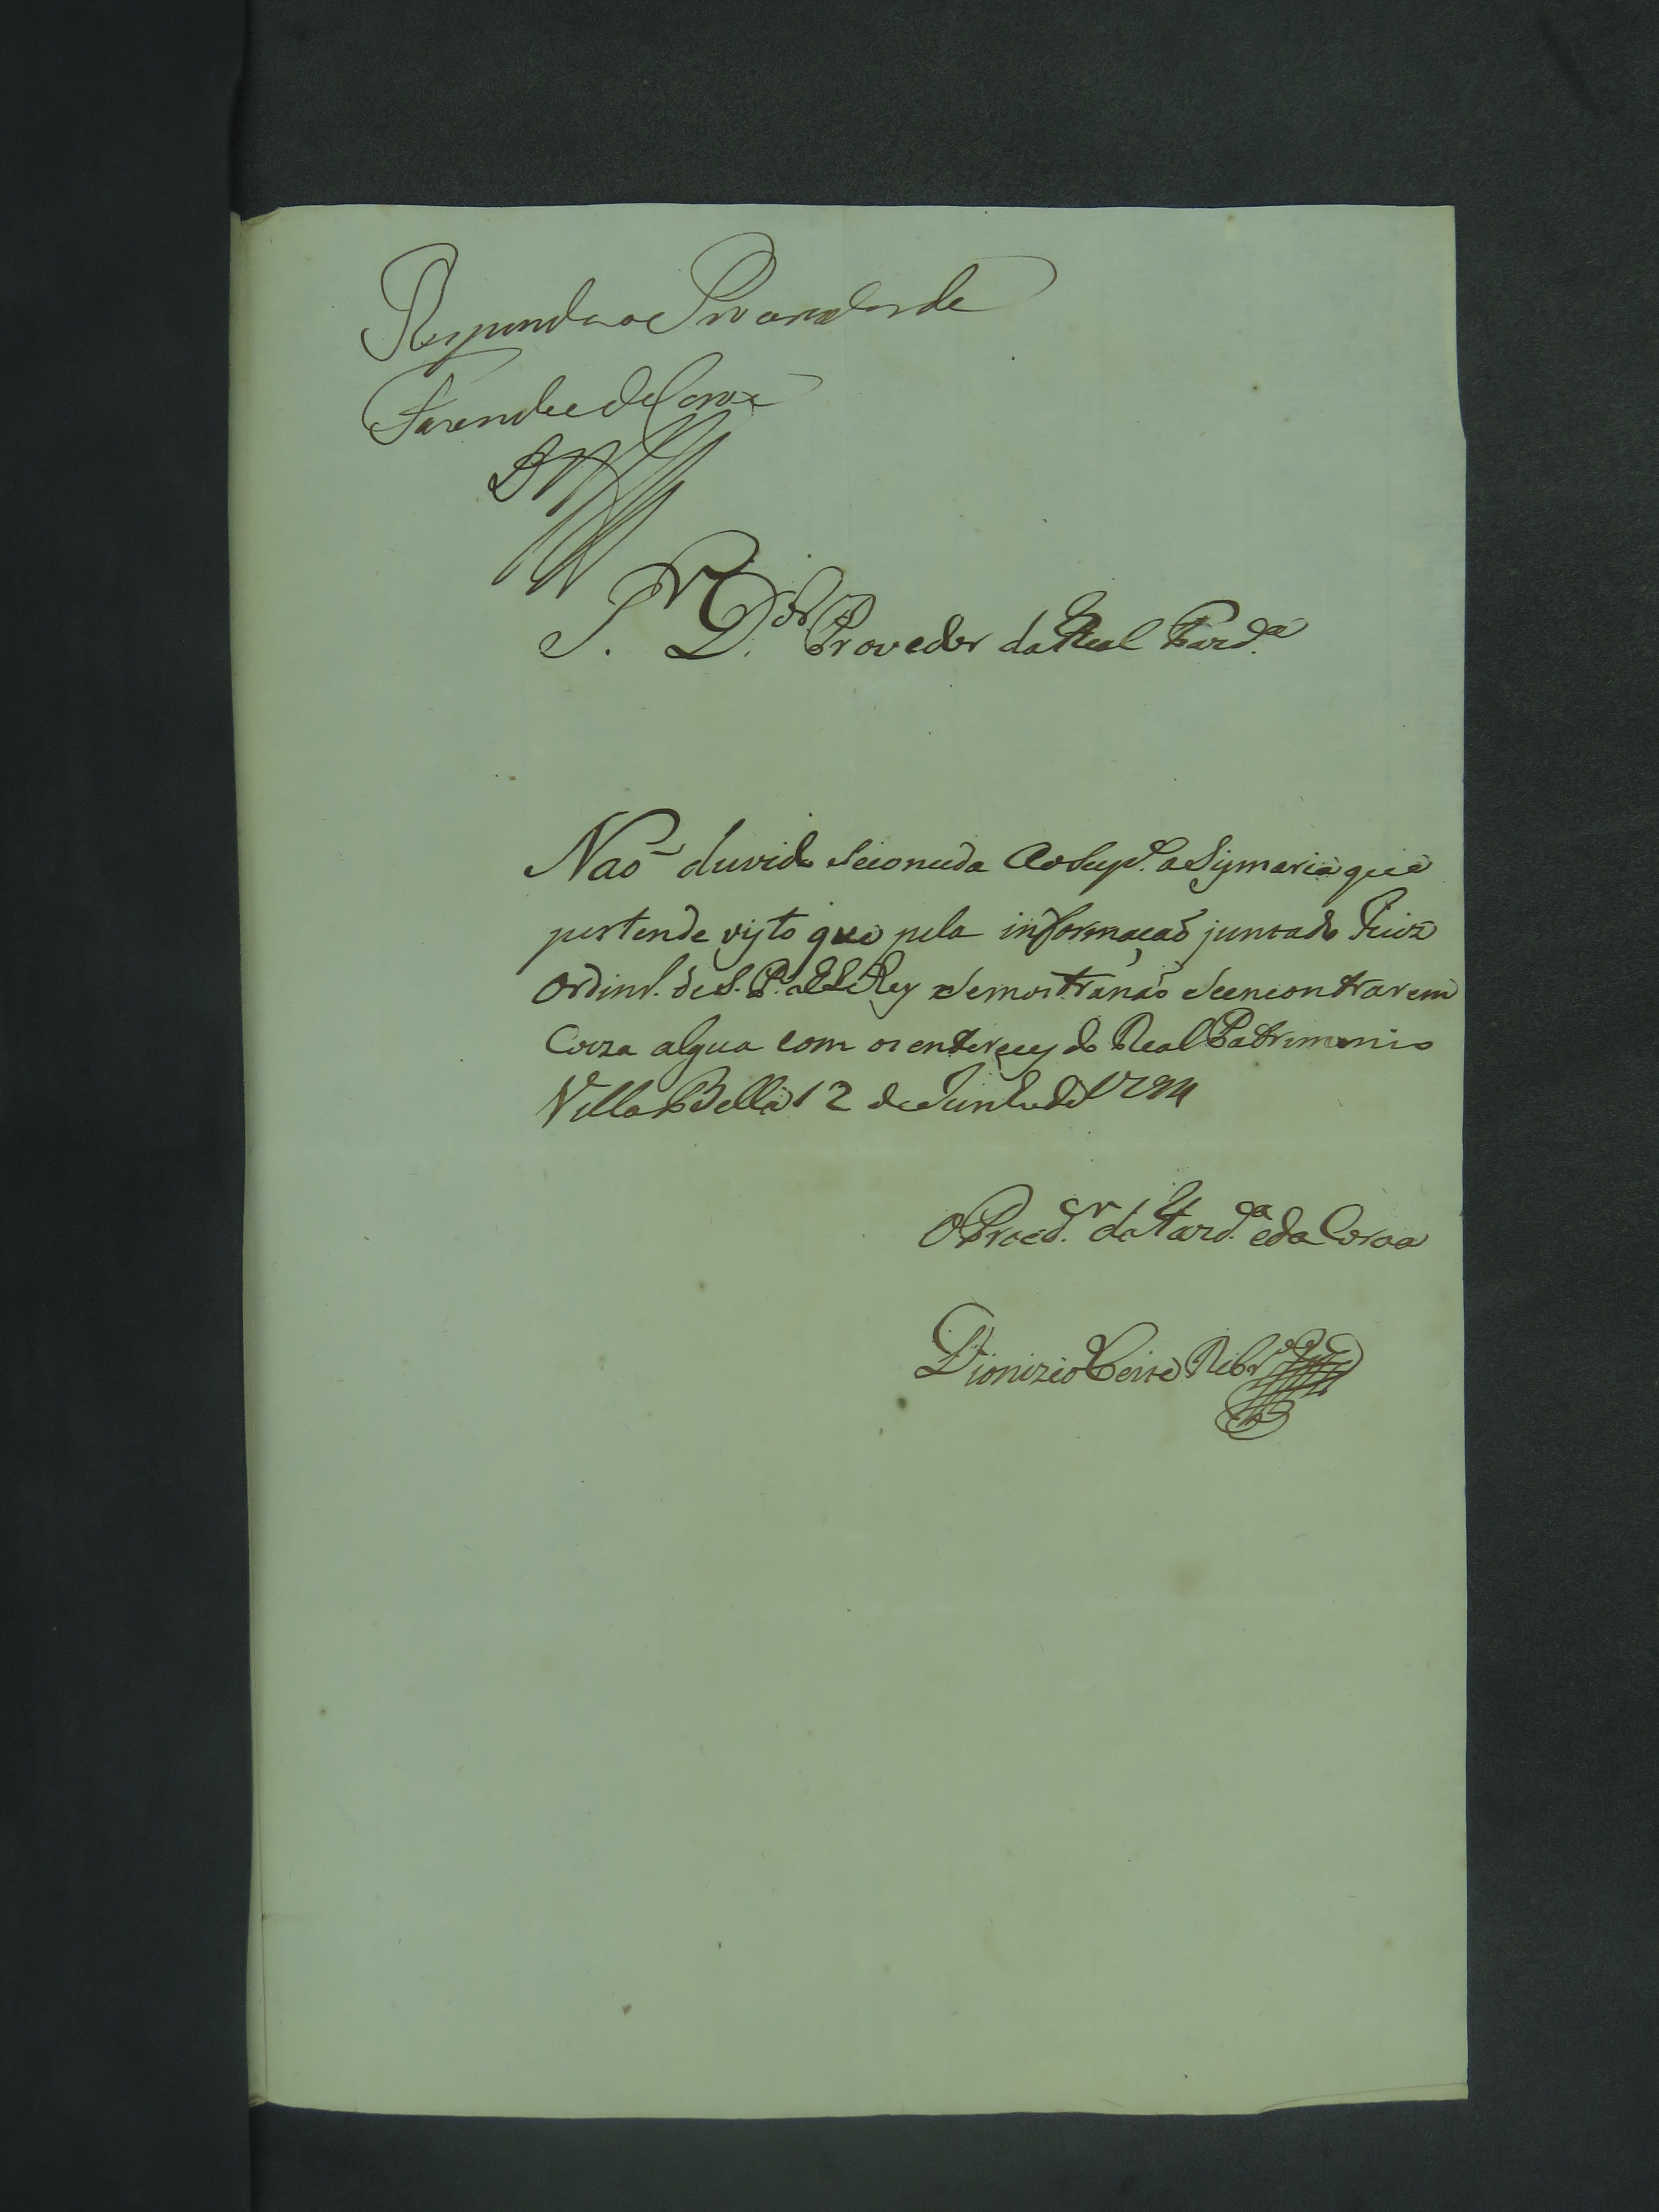 Responda o Procurador da
Fazenda e da Coroa
S.r D.or Provedor da Real Fazd.a
Naõ duvido se conceda ao Sup.e a Sismaria que
pertende visto que pela informaçaõ junta do Juiz
Ordinr.o de S. P. d'El Rey se mostra naõ se encontrar em
Coiza algua com os entereces do Real Patrimonio
Villa Bella 12 de Junho de
O Procd.or da Fazd.a e da Coroa
Dionizio Ribr.o